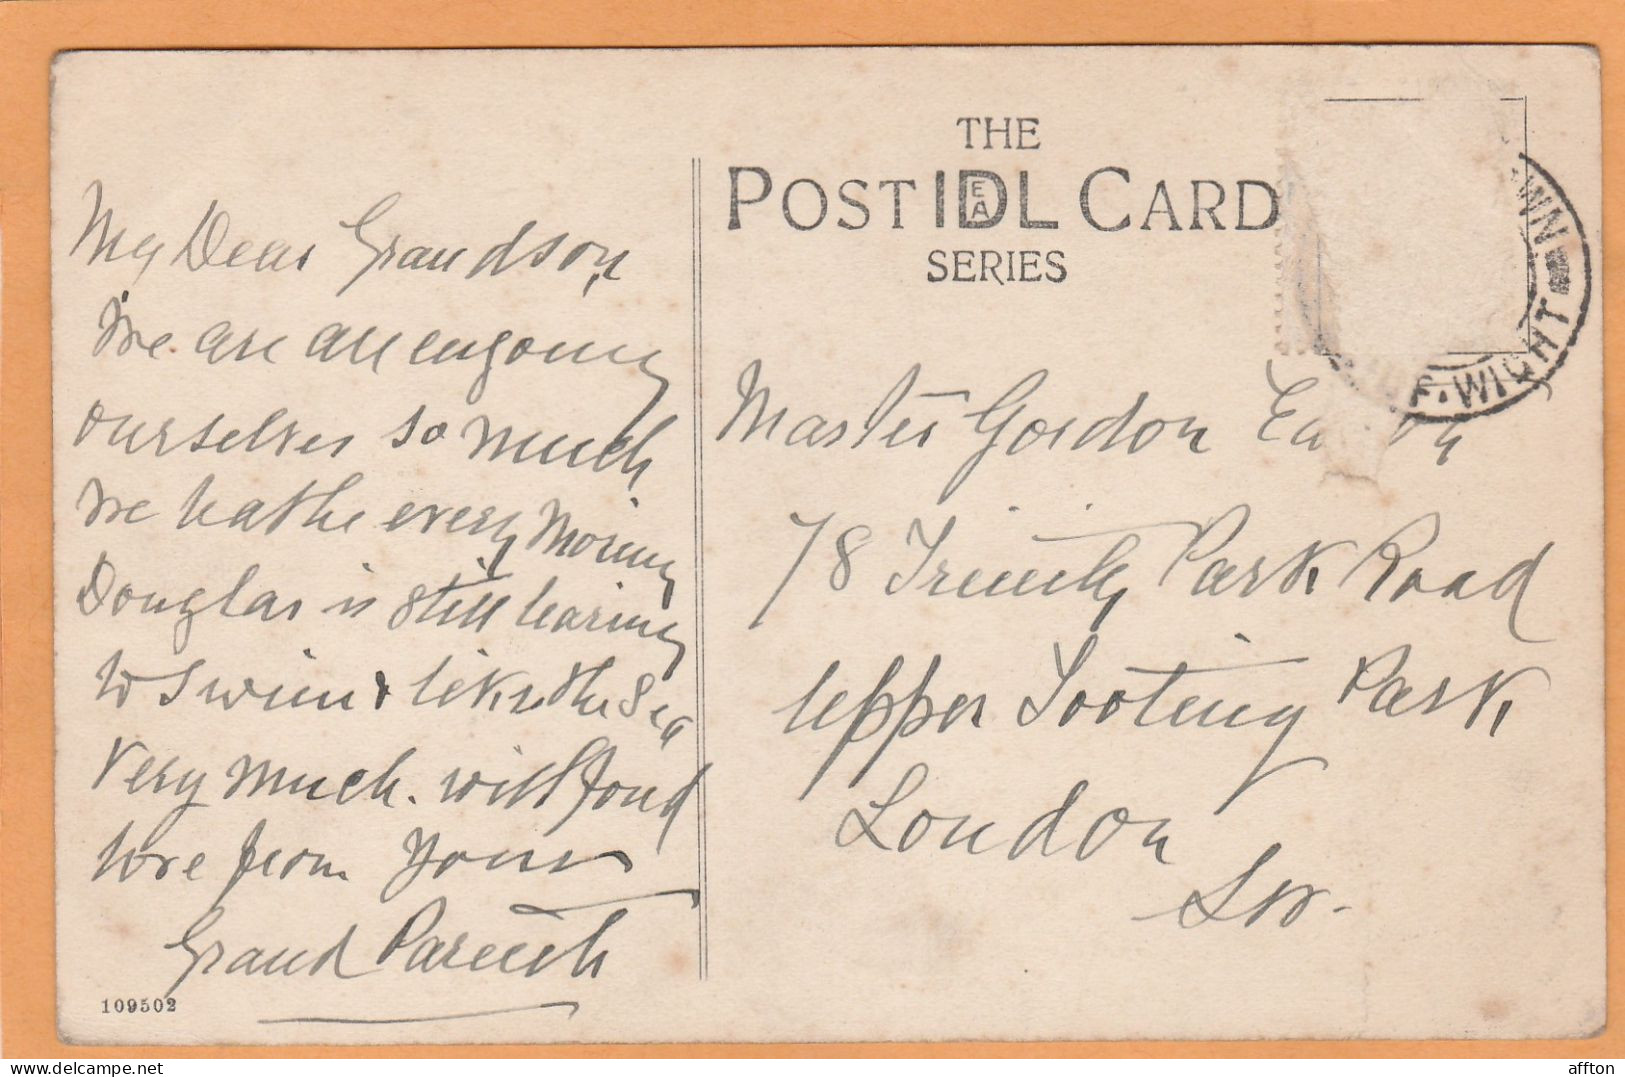 THE
POST IDEAL CARD
SERIES
WNN
OF. WIGHT
My Dear Grandson,
We are all enjoying
ourselves so much
We bathe every Morning
Douglas is still learing
to Swim & likes the Sea
very much. with fond
love from Yours
Grand Parents
109502
Master Gordon
78 Trinity Park Road
Upper Tooting Park
London
SW.
affton